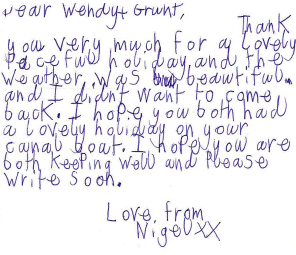 Dear Wendy + Grant,
Thank
you very much for a lovely
Peaceful holiday, and the
weather, was beautiful.
and I didnt want to come
back. I hope you both had
a lovely holiday on your
canal boat. I hope you are
both keeping well and Please
write soon.
Love from
Nigel XX